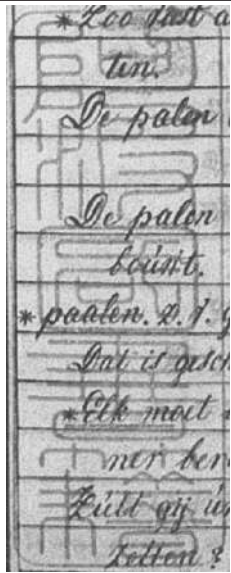 * Zoo vast a
ten.
De palen
De palen
boúwt.
* paalen. D. I. g
Dat is gesch
* Elk moet
ner ber
Zúlt gij ún
zetten?